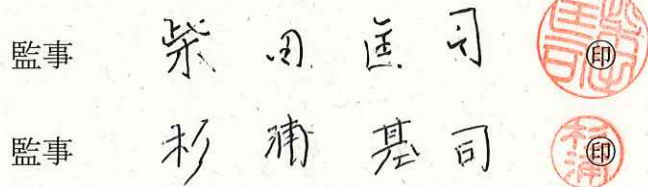 監事 柴田匡司 ㊞
監事 杉浦基司 ㊞